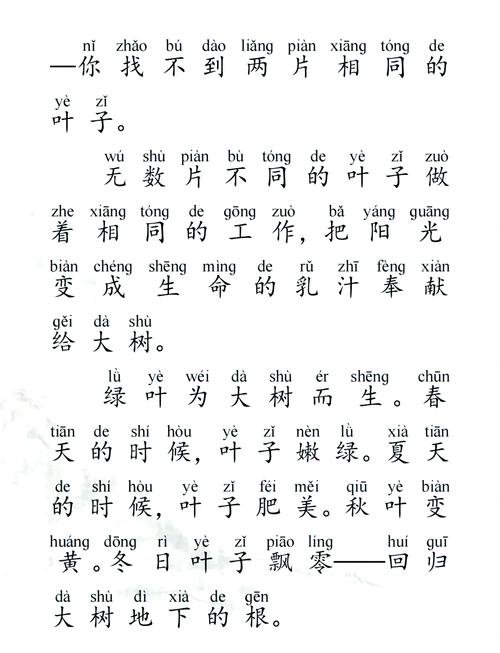 nǐ zhǎo bú dào liǎng piàn xiāng tóng de
—你找不到两片相同的
yè zǐ
叶子。
wú shù piàn bù tóng de yè zǐ zuò
无数片不同的叶子做
zhe xiāng tóng de gōng zuò bǎ yáng guāng
着相同的工作，把阳光
biàn chéng shēng mìng de rǔ zhī fèng xiàn
变成生命的乳汁奉献
gěi dà shù
给大树。
lǜ yè wéi dà shù ér shēng chūn
绿叶为大树而生。春
tiān de shí hòu yè zǐ nèn lǜ xià tiān
天的时候，叶子嫩绿。夏天
de shí hòu yè zǐ féi měi qiū yè biàn
的时候，叶子肥美。秋叶变
huáng dōng rì yè zǐ piāo líng huí guī
黄。冬日叶子飘零——回归
dà shù dì xià de gēn
大树地下的根。